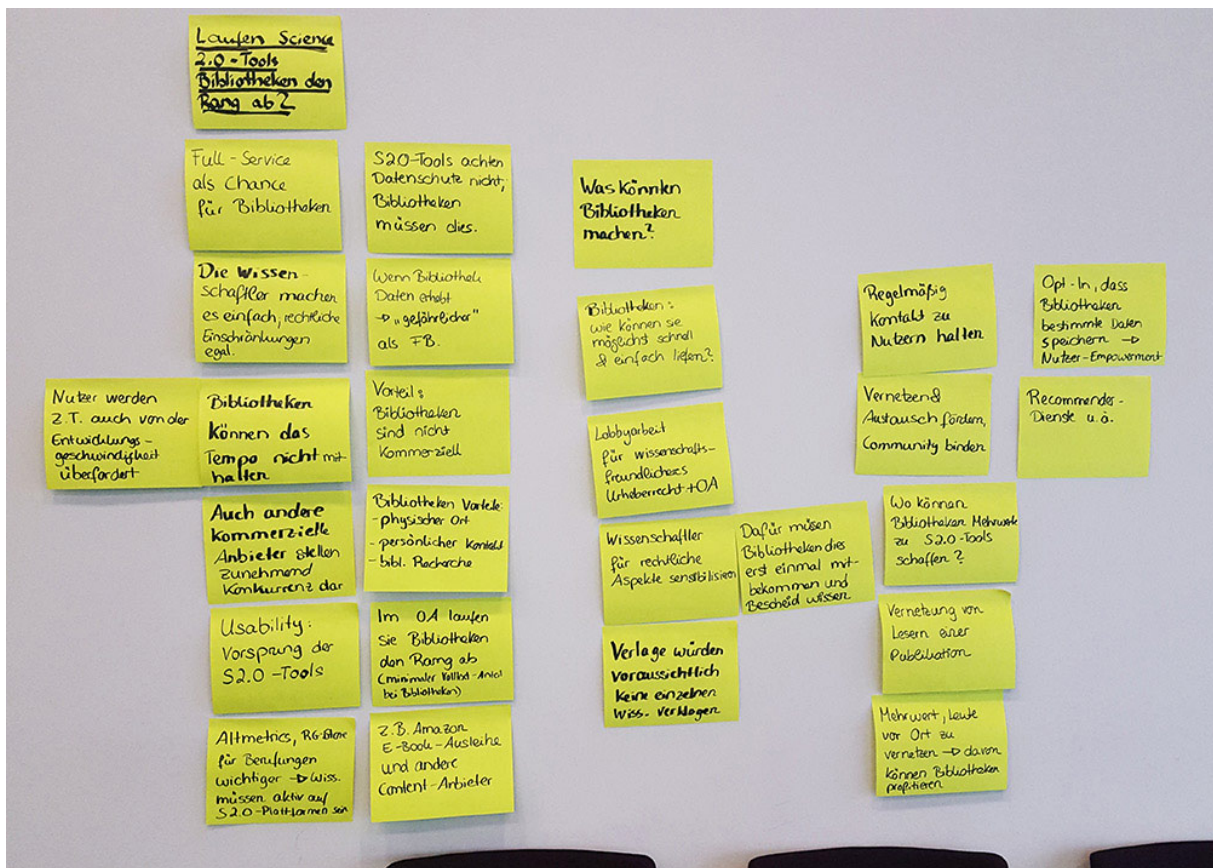 Laufen Science
2.0-Tools
Bibliotheken den
Rang ab?
Full-Service
als Chance
für Bibliotheken
Die Wissen-
schaftler machen
es einfach, rechtliche
Einschränkungen
egal.
Nutzer werden
z.T. auch von der
Entwicklungs-
geschwindigkeit
überfordert
Bibliotheken
können das
Tempo nicht mit-
halten
Auch andere
kommerzielle
Anbieter stellen
zunehmend
Konkurrenz dar
Usability:
Vorsprung der
S2.0-Tools
Altmetrics, RG-Score
für Berufungen
wichtiger → Wiss.
müssen aktiv auf
S2.0-Plattformen sein
S20-Tools achten
Datenschutz nicht,
Bibliotheken
müssen dies.
Wenn Bibliothek
Daten erhebt
→ "gefährlicher"
als FB.
Vorteil:
Bibliotheken
sind nicht
kommerziell
Bibliotheken Vorteile:
- physischer Ort
- persönlicher Kontakt
- bibl. Recherche
Im OA laufen
sie Bibliotheken
den Rang ab
(minimaler Volltext-Anteil
bei Bibliotheken)
z.B. Amazon
E-Book-Ausleihe
und andere
Content-Anbieter
Was könnten
Bibliotheken
machen?
Bibliotheken:
wie können sie
möglichst schnell
& einfach liefern?
Lobbyarbeit
für wissenschafts-
freundlicheres
Urheberrecht + OA
Wissenschaftler
für rechtliche
Aspekte sensibilisieren
Dafür müsen
Bibliotheken dies
erst einmal mit-
bekommen und
Bescheid wissen
Verlage würden
voraussichtlich
keine einzelnen
Wiss. verklagen
Regelmäßig
Kontakt zu
Nutzern halten
Opt-In, dass
Bibliotheken
bestimmte Daten
speichern →
Nutzer-Empowerment
Vernetzen &
Austausch fördern,
Community binden
Recommender-
Dienste u.ä.
Wo können
Bibliotheken Mehrwerte
zu S2.0-Tools
schaffen?
Vernetzung von
Lesern einer
Publikation
Mehrwert, Leute
vor Ort zu
vernetzen → davon
können Bibliotheken
profitieren